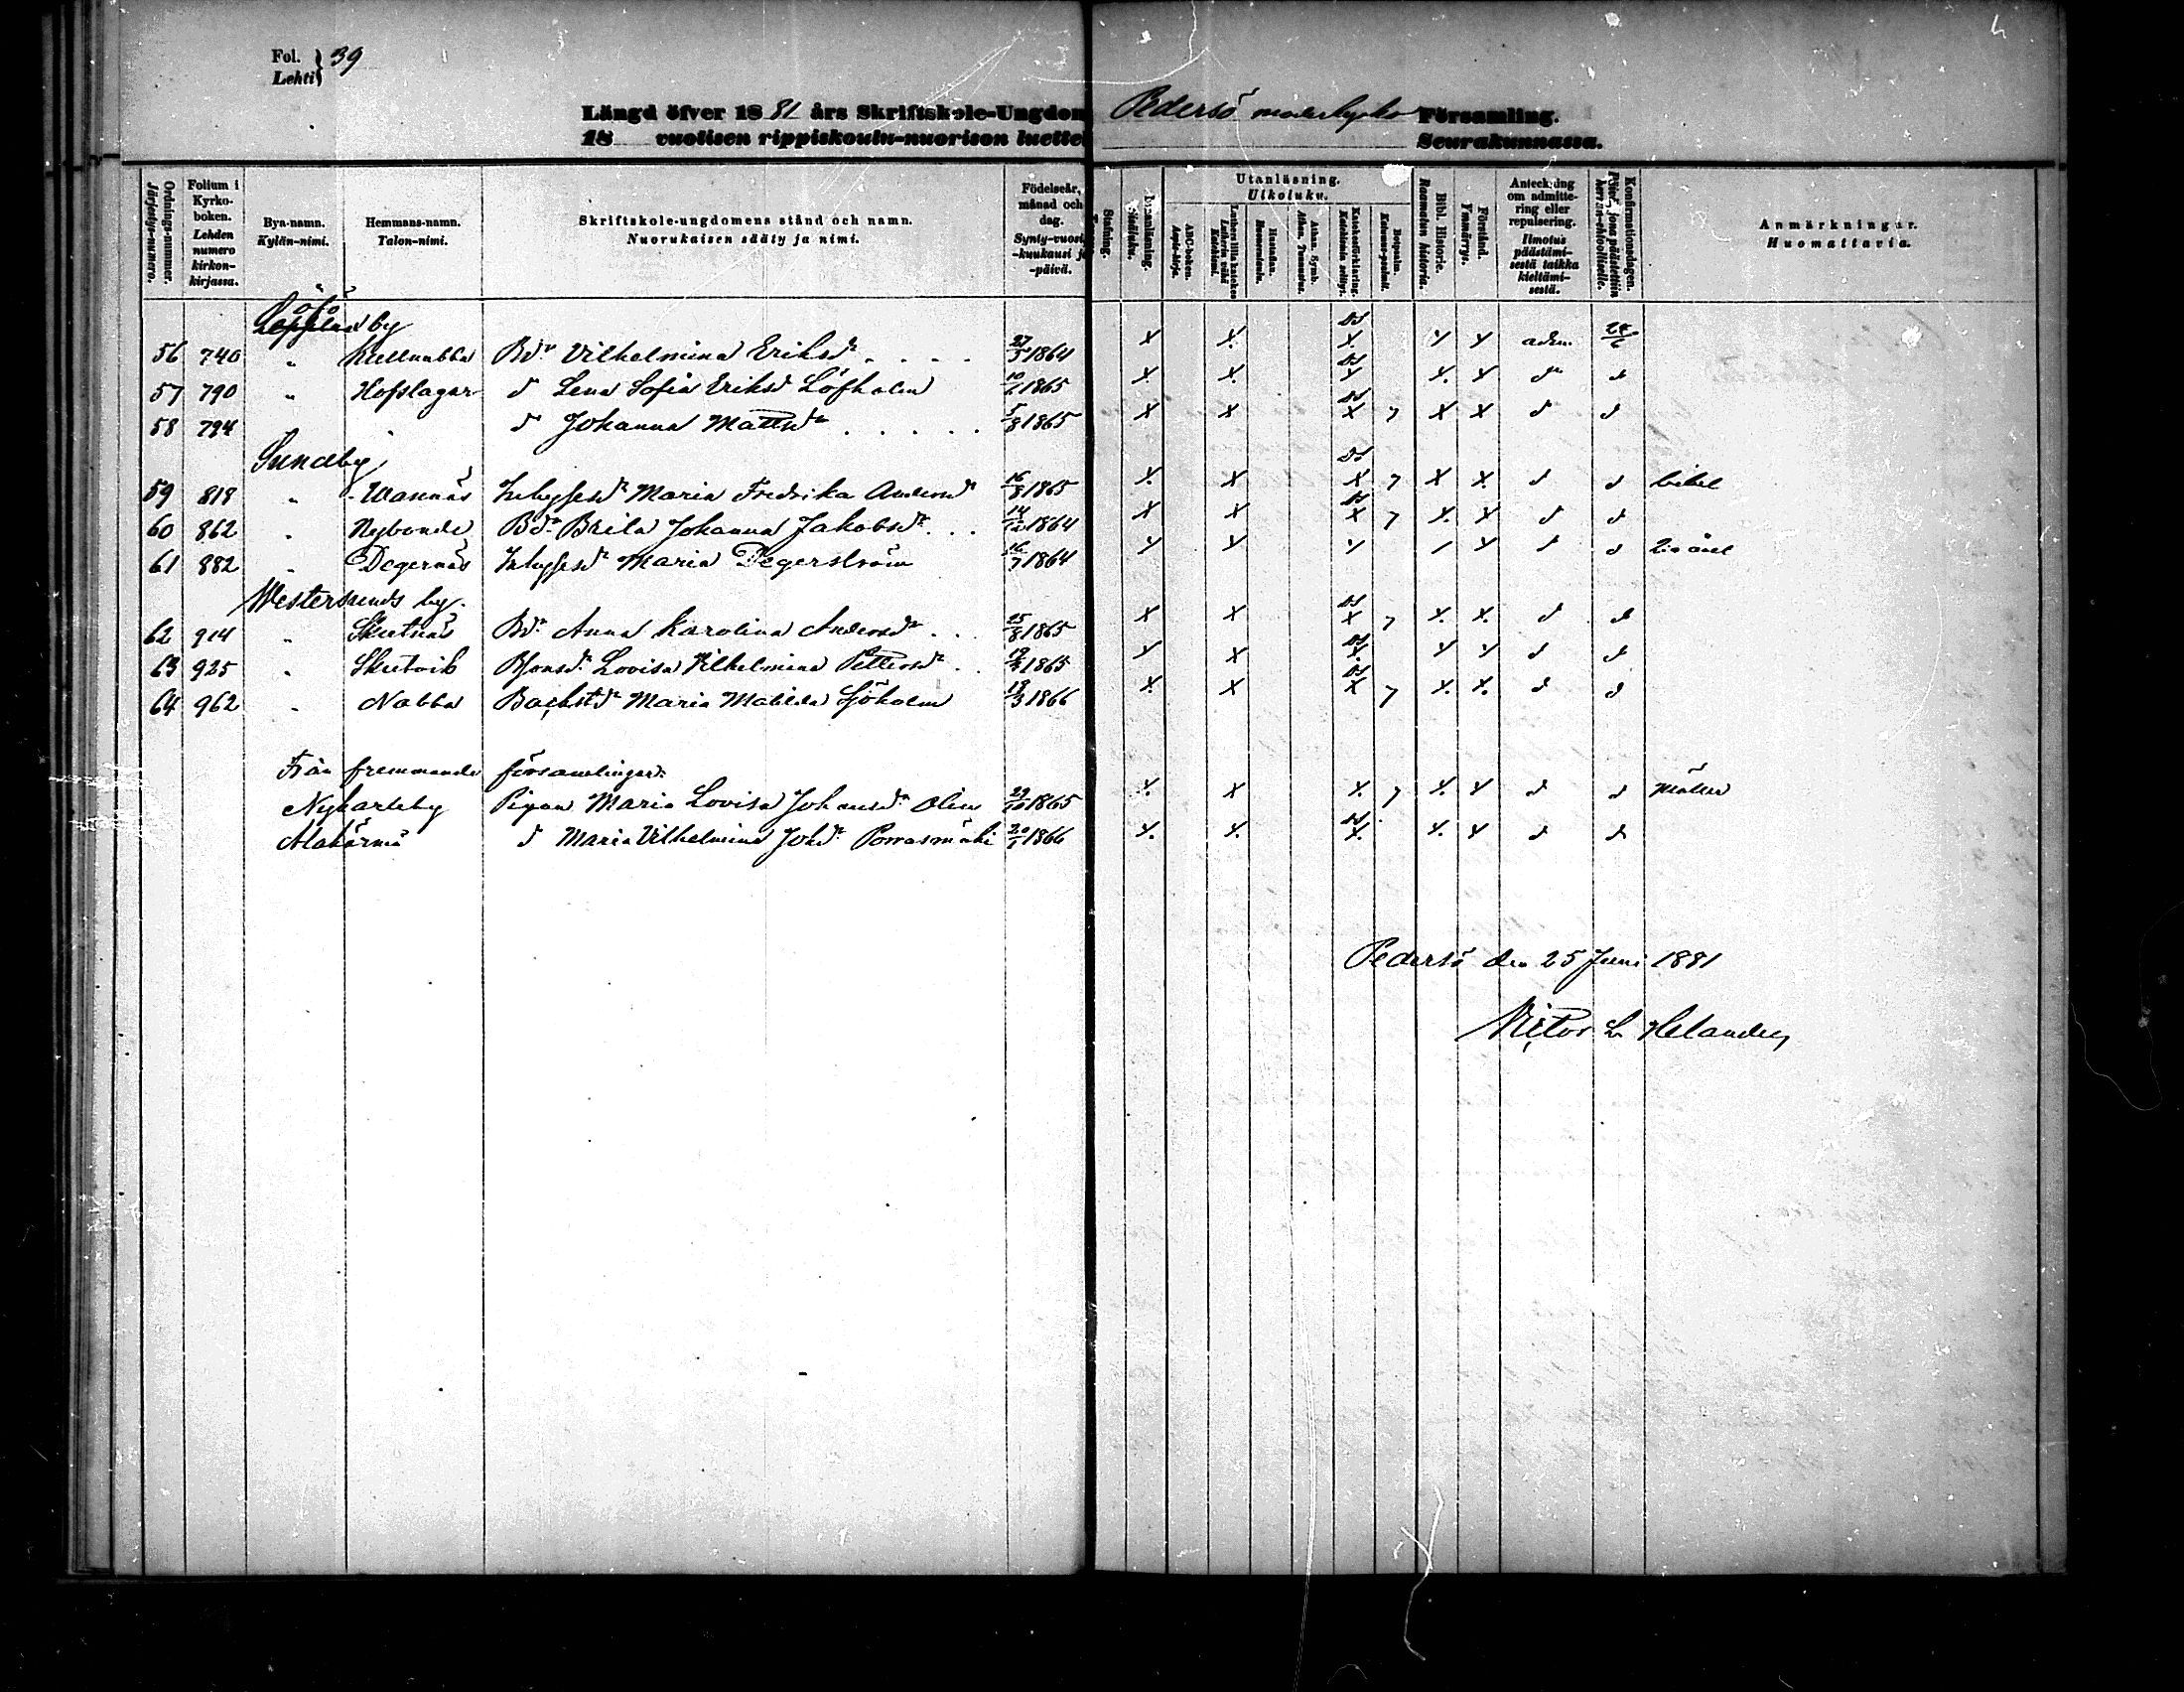 Fol. } 39
Lehti
Längd öfver 1881 års Skriftskole-Ungdom Pedersö moderkyrko Församling.
18 vuotisen rippiskoulu-nuorison luettel Seurakunnassa.
Ordnings-nummer. Järjestys-numero.
Folium i Kyrkoboken. Lehden numero kirkon-kirjassa.
Bya-namn. Kylän-nimi.
Hemmans-namn. Talon-nimi.
Skriftskole-ungdomens stånd och namn. Nuorukaisen sääty ja nimi.
Födelseår, månad och dag. Synty-vuosi -kuukausi ja -päivä.
Stafning.
Innanläsning. Sisäluku.
Utanläsning. Ulkoluku.
ABC-boken. Aapis-kirja.
Luthers lilla katekes Lutherin vähä Katekismi.
Hustaflan. Huoneentaulu.
Athan. Symb. Athan. Tunnustus.
Katekesförklaring. Katekismin selitys.
Botpsalm. Katumus-psalmit.
Bibl. Historie. Raamatun historia.
Förstånd. Ymmärrys.
Anteckning om admittering eller repulsering. Ilmotus päästämisestä taikka kieltämisestä.
Konfirmationsdagen. Päivä, jona päästettiin herran-ehtoolliselle.
Anmärkningar. Huomattavia.
Löfö by
56 740 " Kullnabba Bdr Vilhelmina Eriksdr . . . . 27/5 1864 X X. X. X X adm. 24/6
57 790 " Hofslagar d Lena Sofia Eriksd Löfholm 10/6 1865 X. X. X X. X do d
58 794 " d Johanna Mattsdr . . . . . 5/8 1865 X X X 7 X X d d
Sundby
59 818 " Wannäs Inhysesdr Maria Fredrika Andersdr 16/8 1865 X. X X 7 X X. d d bibel
60 862 " Nybonde Bdr Brita Johanna Jakobsdr . . . 14/12 1864 X X X 7 X. X d d
61 882 " Degernäs Inhysesdr Maria Degerström 16/7 1864 X X X / X d d
Westersunds by.
62 914 " Skutnäs Bdr Anna Karolina Andersdr . . . 25/8 1865 X X X 7 X. X. d d
63 925 " Skutvik Lovisa Vilhelmina Pettersdr . 1865 X X X. X X d d
64 962 " Nabba Backstdr Maria Matilda Sjöholm 18/3 1866 X. X X 7 X. X. d d
Från fremmande församlingar:
Nykarleby Pigan Maria Lovisa Johansdr Olin 29/10 1865 X. X X. 7 X. X d d
Alahärmä d Maria Vilhelmina Johdr Porrasmäki 20/1 1866 X. X. X. X. X d d
Pedersö den 25 Juni 1881
Victor L. Helander